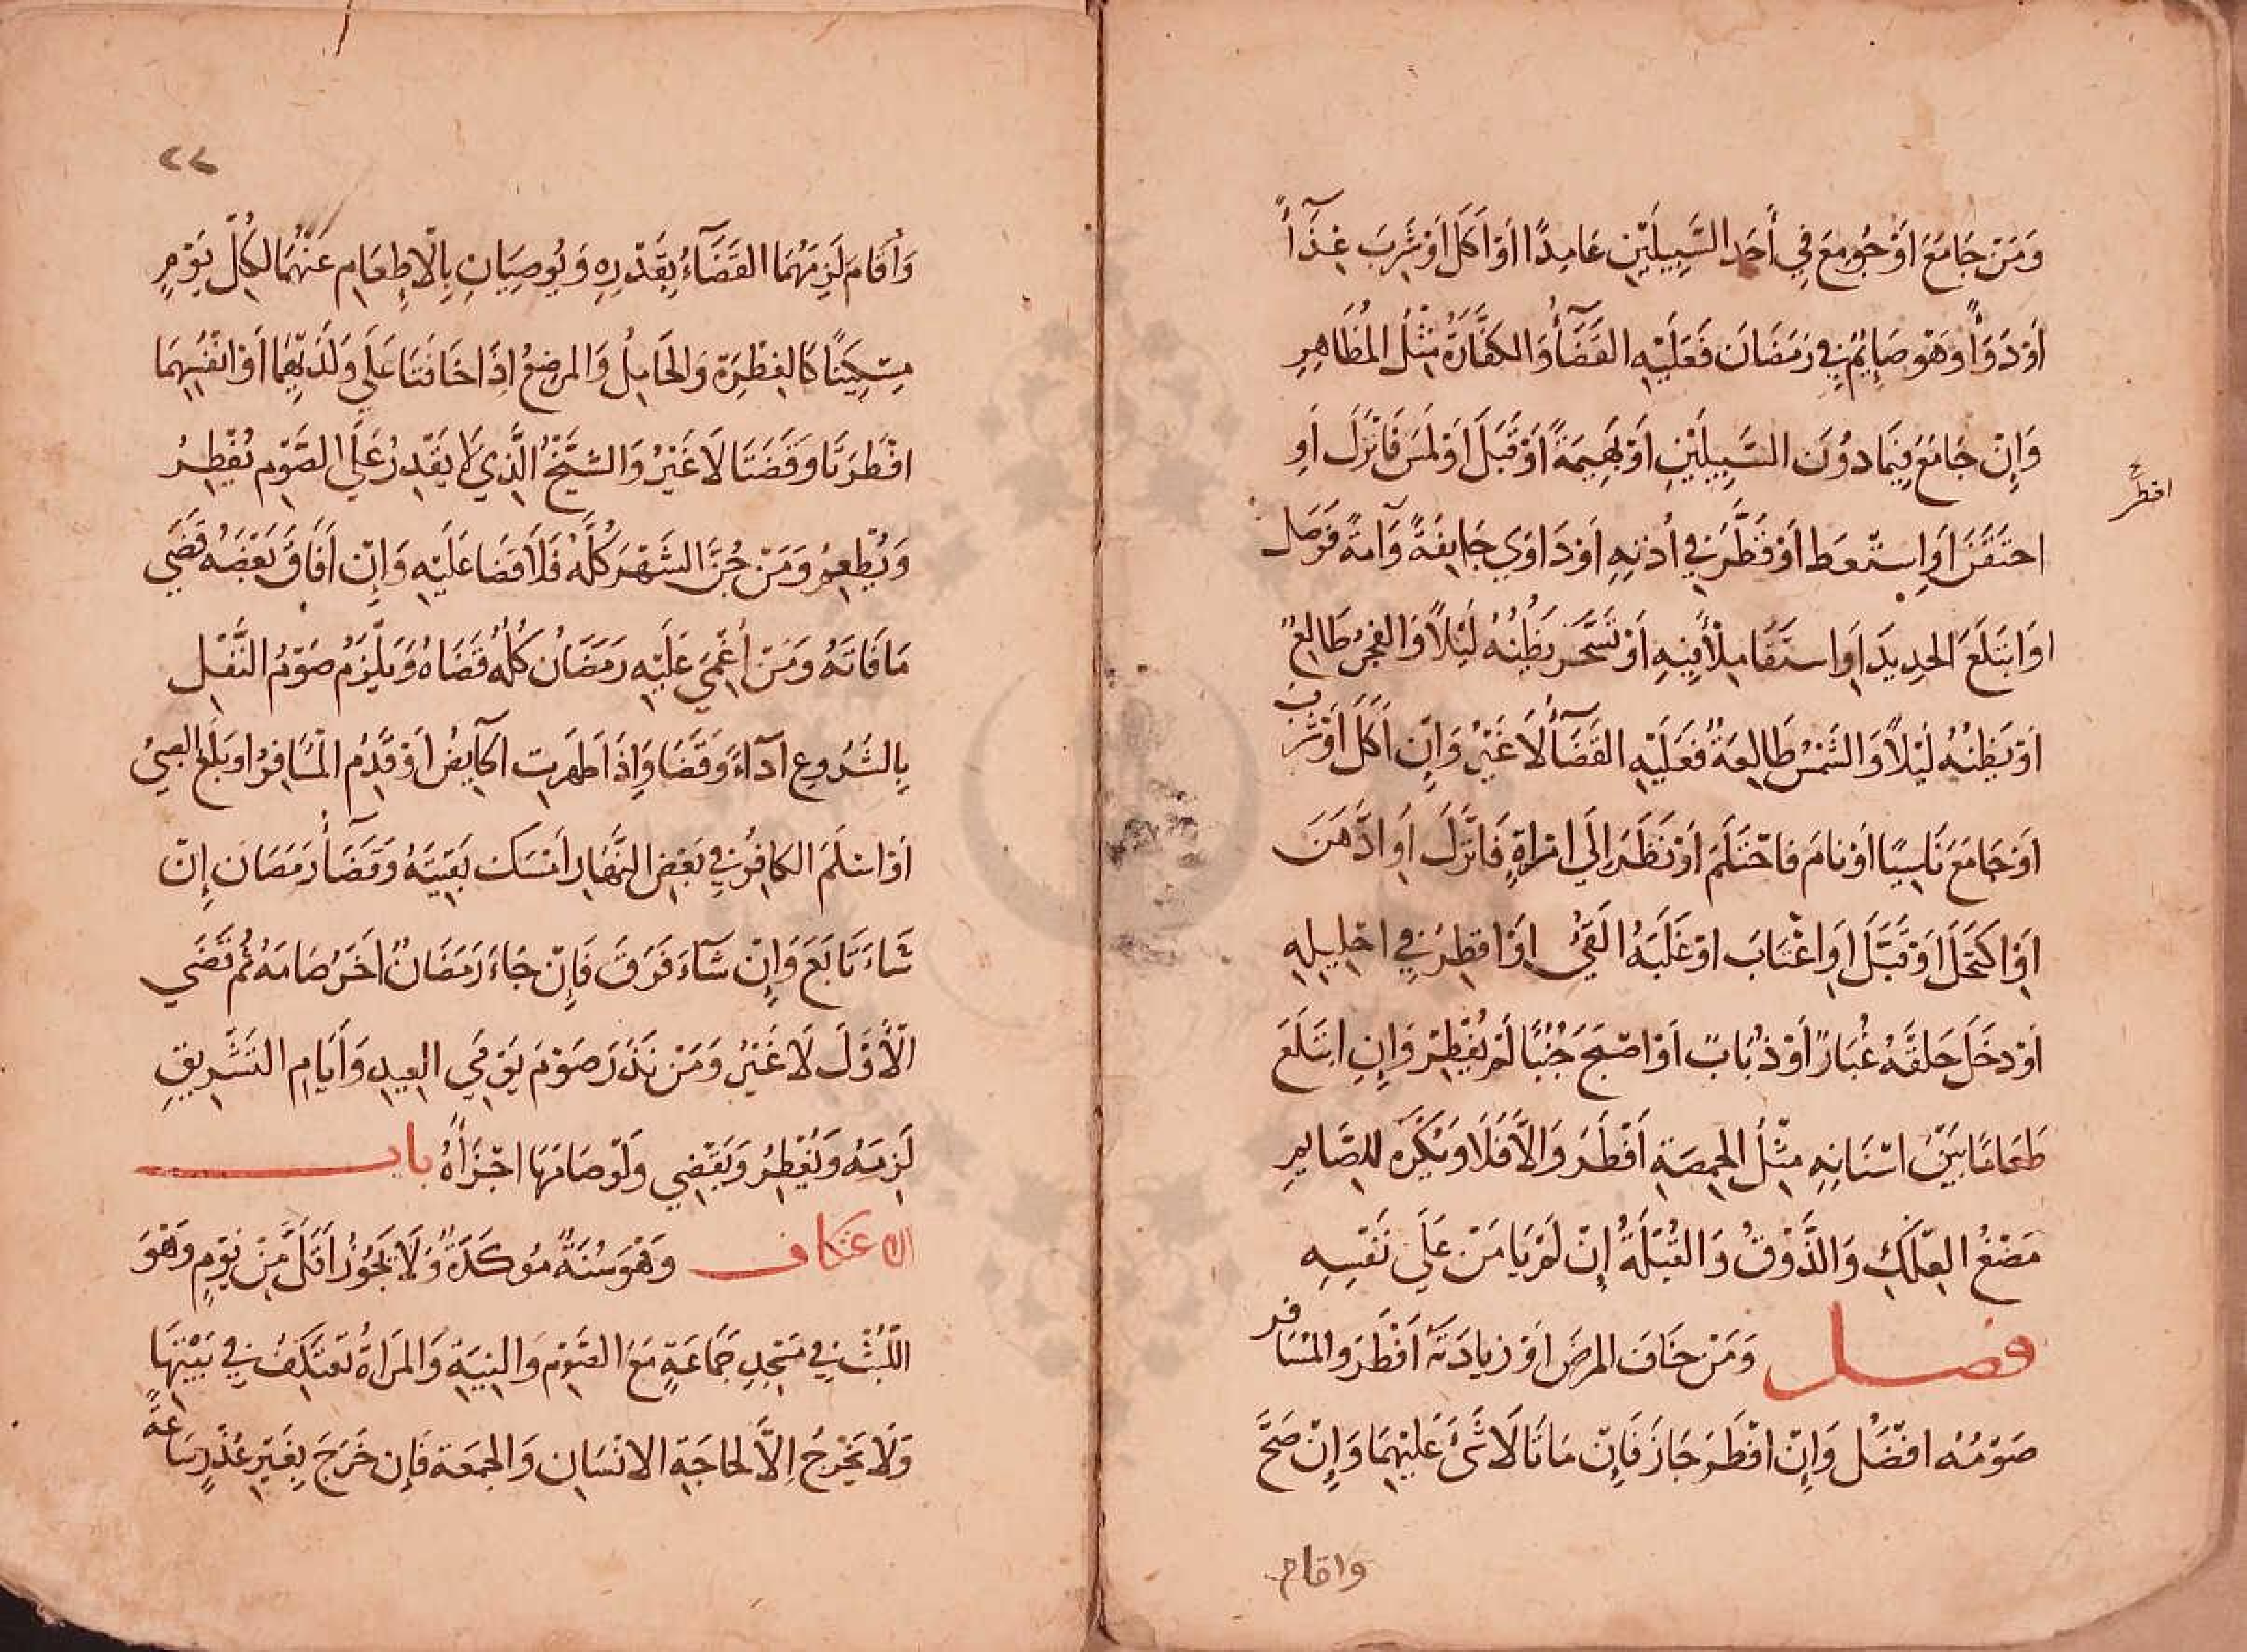 وَمَنْ جَامَعَ اَوْ جُومِعَ فِي أَحَدِ السَّبِيلَيْنِ عَامِدًا اَوْ اَكَلَ اَوْ شَرِبَ غِذَآأً
اَوْ دَوَاًا وَهُوَ صَايِمٌ فِي رَمَضَانَ فَعَلَيْهِ القَضَآأُ وَالكَفَّارَةُ مِثْلُ المُظَاهِرِ
وَاِنْ جَامَعَ فِيمَا دُوْنَ السَّبِيلَيْنِ اَوْ بَهِيمَةً اَوْ قَبَّلَ اَوْ لمَسَ فَاَنْزَلَ اَوِ
احتَقَنَ اَوِ اسْتَعَطَ اَوْ قَطَّرَ فِي اُذنِهِ اَوْ دَاوَي جَايِفَةً وَآمةً فَوَصَلَ
اقطر
اوَ ابتَلَعَ الحدِيدَ اَوِ استَقَا مِلْأَفِيهِ اَوْ تَسَحَّرَ يَظُنُّهُ لَيْلاً وَالفَجْرُ طَالِعٌ
اَوْ يَظنُّهُ لَيْلاً وَالشَّمْسُ طَالِعَةٌ فَعَلَيْهِ القَضَآأُ لَا غَيْرُ وَاِن اَكَلَ اَوْ شَرِبَ
اَوْ جَامَعَ نَاسِيًا اَوْ نَامَ فَاحْتَلَمَ اَوْ نَظَرَ اِلَي امْرَاةٍ فَاَنْزَلَ اَوِ ادَّهَنَ
اَوِ اكتَحَلَ اَوْ قَبَّلَ اَوِ اغْتَابَ اوْ غَلَبَهُ القَيْءُ اَوْ اقطِرَ فِي احْلِيلِهِ
اَوْ دَخَلَ حَلقَهُ غُبَارٌ اَوْ ذُبَابٌ اَوْ اَصْبَحَ جُنُبًا لَمْ يُفْطِرْ وَاِنِ ابتَلَعَ
طَعَامًا بَيْنَ اسْنَانِهِ مِثْلَ الحِمصَةِ اَفْطَرَ وَاِلاَّ فَلَا وَيُكْرَهُ للصَّايِمِ
مَضْغُ العِلْكِ وَالذَّوْقُ وَالقُبْلَةُ اِنْ لَمْ يَامَنْ عَلَي نَفْسِهِ
فصل وَمَنْ خَافَ المرَضَ اَوْ زِيَادَتَهُ اَفْطَرَ وَالمُسَافر
صَوْمُهُ افْضَلُ وَاِنْ افْطَرَ جَازَ فَاِنْ مَاتَا لَا شَيْءَ عَلَيْهِمَا وَاِنْ صَحَّ
واقام
٢٢
وَأَقَامَ لَزِمَهُمَا القَضَآءُ بِقَدْرِهِ وَيُوصِيَانِ بِالْاِطِعَامِ عَنْهُمَا لِكُلِّ يَوْمٍ
مِسْكِينًا كَالفِطْرَةِ وَالحَامِلُ وَالمرضِعُ اِذَا خَافَتَا عَلَي وَلَدَيْهِمَا اَوْ انفُسِهِمَا
افْطَرَتَا وَقَضَتَا لَا غَيْرُ وَالشَّيْخُ الَّذِي لَا يَقْدِرُ عَلَي الصَّوْمِ يُفْطِرُ
وَيُطْعِمُ وَمَنْ جُنَّ الشَّهْرَ كُلَّهُ فَلَا قَضَا عَلَيْهِ وَاِنْ اَفَاقَ بَعْضَهُ قَضَي
مَا فَاتَهُ وَمَنْ اُغْمِيَ عَلَيْهِ رَمَضَانُ كُلُّهُ قَضَاهُ وَيَلْزَمُ صَوْمُ النَّفْلِ
بِالشُّرُوعِ ادَآءً وَقَضَا وَاِذَا طَهَرَتِ الحَآيِضُ اَوْ قَدِمَ الْمُسَافِرُ اوْ بَلَغَ الصبِيُ
اَوْ اسْلَمَ الكافِرُ فِي بَعْضِ النَّهَارِ اَمْسَكَ بَقِيَّتَهُ وَقَضَآأُ رَمَضَانَ اِنْ
شَاءَ تَابَعَ وَاِنْ شَآءَ فَرَّقَ فَاِنْ جَاءَ رَمَضَانٌ اخَرُ صَامَهُ ثُمَّ قَضَي
الْأَوَّلَ لَا غَيْرُ وَمَنْ نَذَرَ صَوْمَ يَوْمَيِ العِيدِ وَاَيَّامِ التَّشْرِيقِ
لَزِمَهُ وَيُفْطِرُ وَيَقْضِي وَلَوْ صَامَهَا اجْزَأَهُ باب
الاعتكاف وَهْوَ سُنَّةٌ مُوكَدَةٌ وَلَا يَجُوْزُ اَقَلَّ مِنْ يَوْمٍ وَهْوَ
اللَّبْثُ فِي مَسْجِدِ جَمَاعَةٍ مَعَ الصَّوْمِ وَالنِّيَةِ وَالمَرَاةُ تَعتَكِفُ فِي بَيْتِهَا
وَلَا يَخْرُجُ اِلاَّ لحَاجَةِ الاِنْسَانِ وَالجمعَةِ فَاِن خَرَجَ بِغَيْرِ عُذْرٍ سَاعَةً